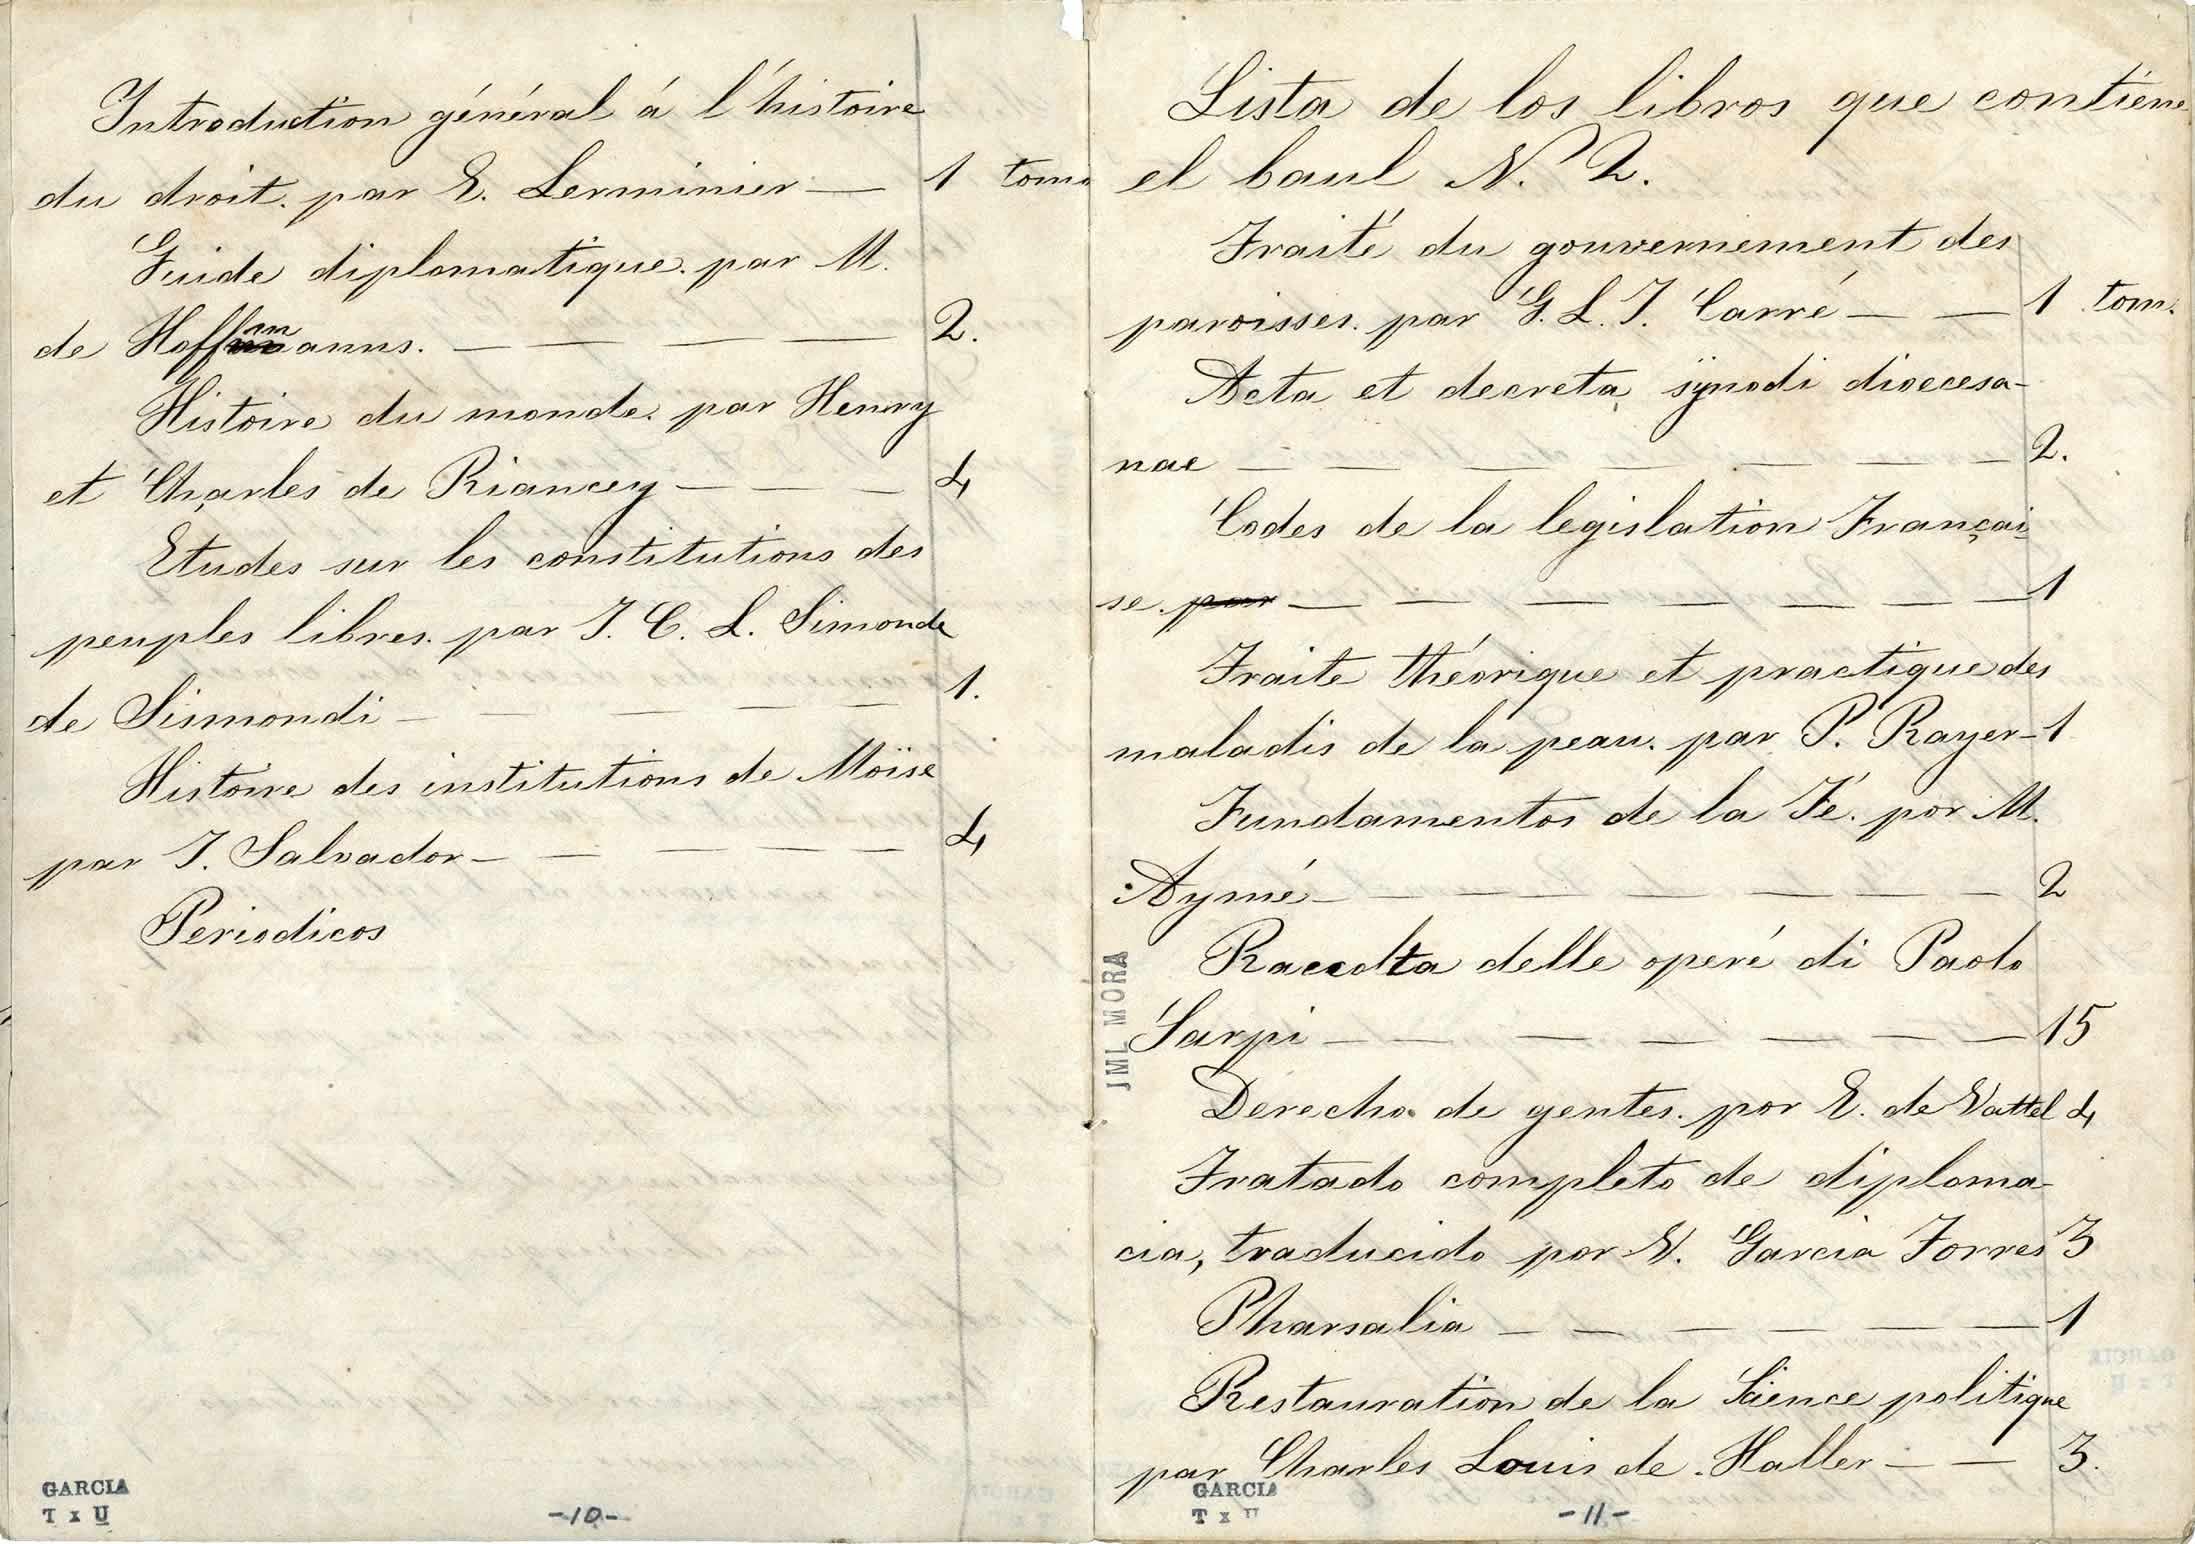 Introduction général á l'histoire
du droit. par E. Lerminier — 1 tomo
Guide diplomatique. par M.
de Hoffmanns. — — — — 2.
Histoire du monde. par Henry
et Charles de Riancey — — — 4
Etudes sur les constitutions des
peuples libres. par J. C. L. Simonde
de Sismondi — — — — — 1.
Histoire des institutions de Moïse
par J. Salvador — — — — — 4
Periodicos
GARCIA
T x U
-10-
Lista de los libros que contiene
el baul N. 2.
Traité du gouvernement des
paroisses. par G. L. J. Carré — — 1 tom.
Acta et decreta synodi dioecesa-
nae — — — — — — — 2.
Codes de la legislation Françai-
se. par — — — — — — — 1
Traite théorique et practique des
maladis de la peau. par P. Rayer — 1
Fundamentos de la Fé. por M.
Aymé — — — — — — — 2
Raccolta delle operé di Paolo
Sarpi — — — — — — — 15
Derecho de gentes. por E. de Vattel 4
Tratado completo de diploma-
cia, traducido por V. Garcia Torres 3
Pharsalia — — — — — — 1
Restauration de la Science politique
par Charles Louis de Haller — — 3.
JML MORA
GARCIA
T x U
-11-